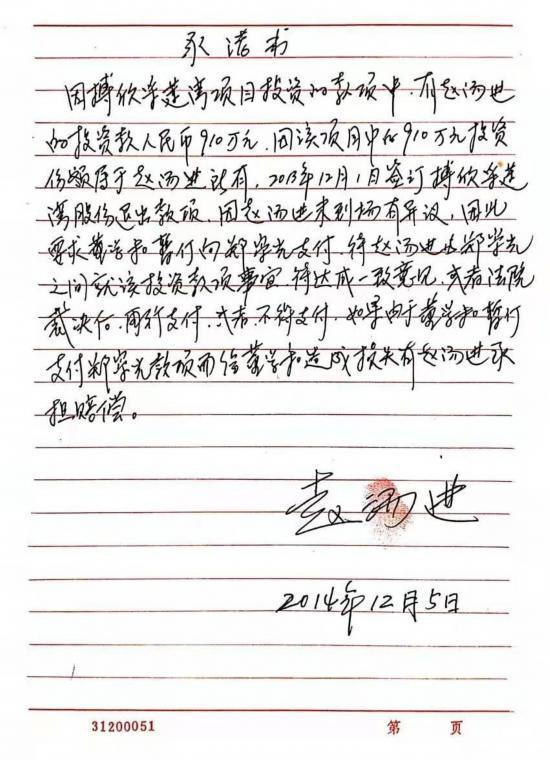 承诺书
因搏欣幸莲湾项目投资的款项中,有赵汤进
的投资款人民币910万元,因该项目中的910万元投资
份额属于赵汤进所有,2013年12月1日签订搏欣幸莲
湾股份退出款项,因赵汤进未到场有异议,因此
要求董学和暂付向郑学光支付,待赵汤进与郑学光
之间就该投资款项事宜,待达成一致意见,或者法院
裁决后,再行支付,或者不得支付,如果由于董学和暂行
支付郑学光款项而给董学和造成损失有赵汤进承
担赔偿。
赵汤进
2014年12月5日
31200051 第 页